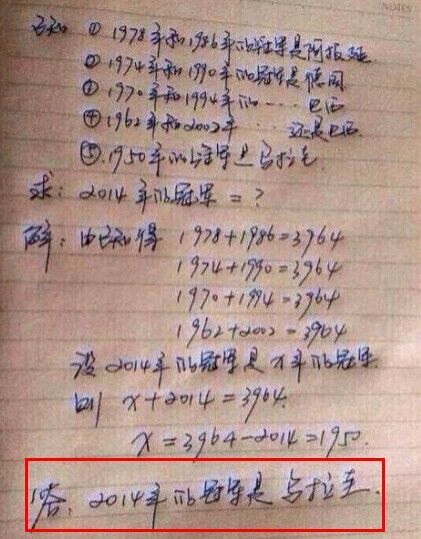 已知 ① 1978年和1986年的冠军是阿根廷
② 1974年和1990年的冠军是德国
③ 1970年和1994年的…… 巴西
④ 1962年和2002年…… 还是巴西
⑤ 1950年的冠军是乌拉圭
求：2014年的冠军=？
解：由已知得 1978+1986=3964
1974+1990=3964
1970+1994=3964
1962+2002=3964
设2014年的冠军是x年的冠军
则 x+2014=3964.
x=3964-2014=1950.
答：2014年的冠军是乌拉圭.